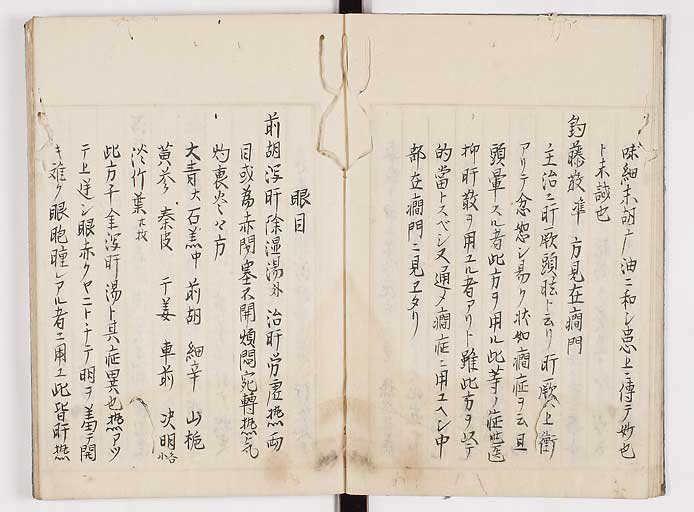 味細末胡麻油ニ和シ患上ニ傅テ妙也
ト未試也
釣藤散準 方見在癇門
主治ニ肝厥頭眩ト云リ肝厥ハ上衝
アリテ忿怒シ易ク状如癇症ヲ云且
頭暈スル者此方ヲ用ル此等ノ症世医
抑肝散ヲ用ユル者アリト雖此方ヲ以テ
的當トスベシ又通メ癇症ニ用ユヘシ中
都在癇門ニ見ヱタリ
眼目
前胡瀉肝除湿湯外 治肝労虚熱両
目或為赤閉塞不開煩悶宛轉熱気
灼裏
方
大青大 石羔中 前胡 細辛 山梔
黄芩 秦皮 干姜 車前 决明各小
淡竹葉
此方千金瀉肝湯ト其症異也熱アツ
テ上逆シ眼赤クヤニトチテ明ヲ羞テ開
キ難ク眼胞腫レアル者ニ用ユ此皆肝熱